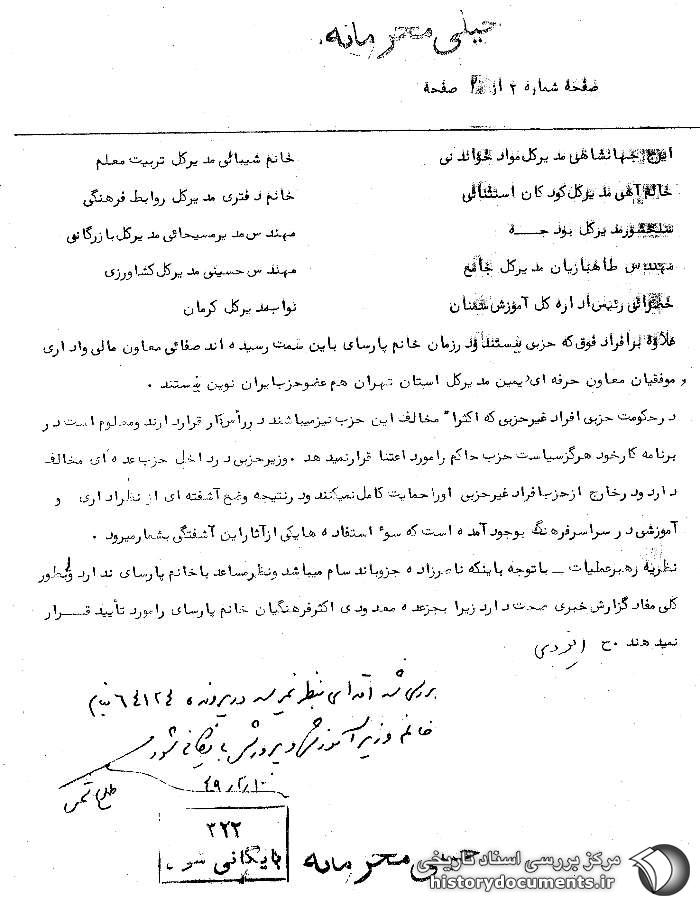 خیلی محرمانه.
صفحهٔ شماره ۲ از ۲ صفحهٔ
ایرج جهانشاهی مدیرکل مواد خواندنی
خانم شیبانی مدیرکل تربیت معلم
خانم آهی مدیرکل کودکان استثنائی
خانم دفتری مدیرکل روابط فرهنگی
مدیرکل بودجه
مهندس میرمسیحائی مدیرکل بازرگانی
مهندس طاهبازیان مدیرکل جامع
مهندس حسینی مدیرکل کشاورزی
خضرائی رئیس اداره کل آموزش سمنان
نواب مدیرکل کرمان
علاوه برافراد فوق که حزبی نیستند ودرزمان خانم پارسای باین سمت رسیده اند صفائی معاون مالی واداری
و موفقیان معاون حرفه ای یمین مدیرکل استان تهران هم عضوحزب ایران نوین نیستند .
درحکومت حزبی افراد غیرحزبی که اکثرا" مخالف این حزب نیزمیباشند دررأس کار قراردارند ومعلوم است در
برنامه کارخود هرگزسیاست حزب حاکم را مورد اعتنا قرارنمیدهد . وزیرحزبی درداخل حزب عده ای مخالف
دارد ودرخارج ازحزب افراد غیرحزبی اوراحمایت کامل نمیکنند ودرنتیجه وضع آشفته ای از نظراداری و
آموزشی درسراسرفرهنگ بوجود آمده است که سوء استفاده ها یکی ازآثاراین آشفتگی بشمارمیرود .
نظریه رهبرعملیات ــ باتوجه باینکه ناصرزاده جزوباند سام میباشد ونظرمساعد باخانم پارسای ندارد وبطور
کلی مفاد گزارش خبری صحت دارد زیرا بجزعده معدودی اکثرفرهنگیان خانم پارسای رامورد تأیید قــرار
نمیدهند . ح
بررسی شد اقدامی بنظر نمیرسد در پرونده ۶۴۱۲۴ بنام
خانم وزیر آموزش و پرورش بایگانی شود
۴۹٫۲٫۱۰
۳۲۲
بایگانی شود
خیلی محرمانه
مرکز بررسی اسناد تاریخی
historydocuments.ir